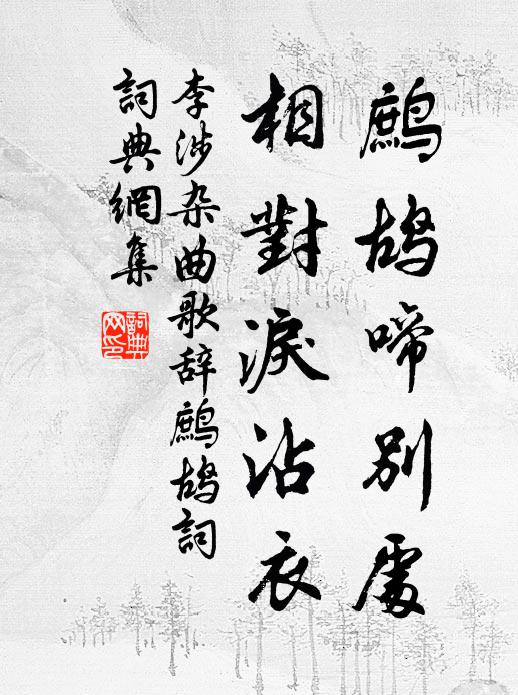 鷓鴣啼別處
相對淚沾衣
李涉杂曲歌辞鷓鴣詞
詞典網集
詞典网印